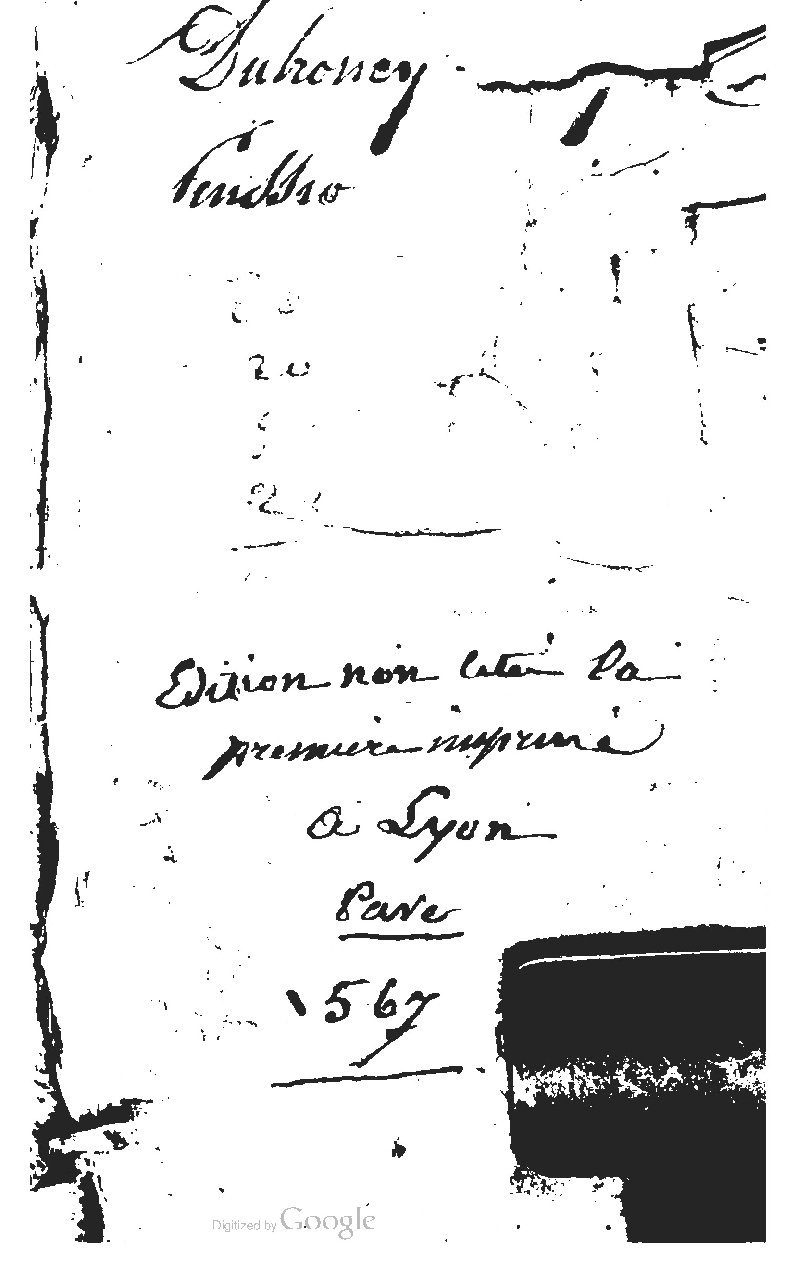 Duhoney
20
Edition non citée la
premiere imprimé
a Lyon
Rare
1567
Digitized by Google